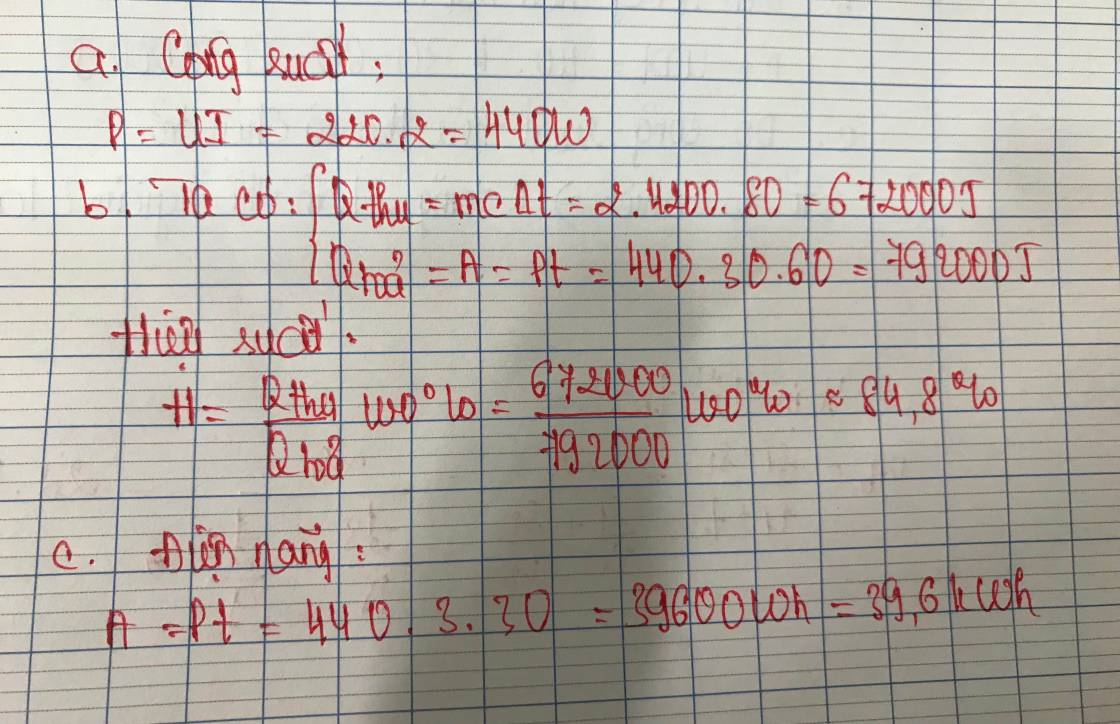 a. Công suất:
P = UI = 220.2 = 440W
b. Ta có: { Q thu = mcΔt = 2.4200.80 = 672000J
Q toả = A = Pt = 440.30.60 = 792000J
Hiệu suất:
H = Q thu / Q toả 100% = 672000 / 792000 100% ≈ 84,8%
c. Điện năng:
A = Pt = 440.3.30 = 39600Wh = 39,6kWh